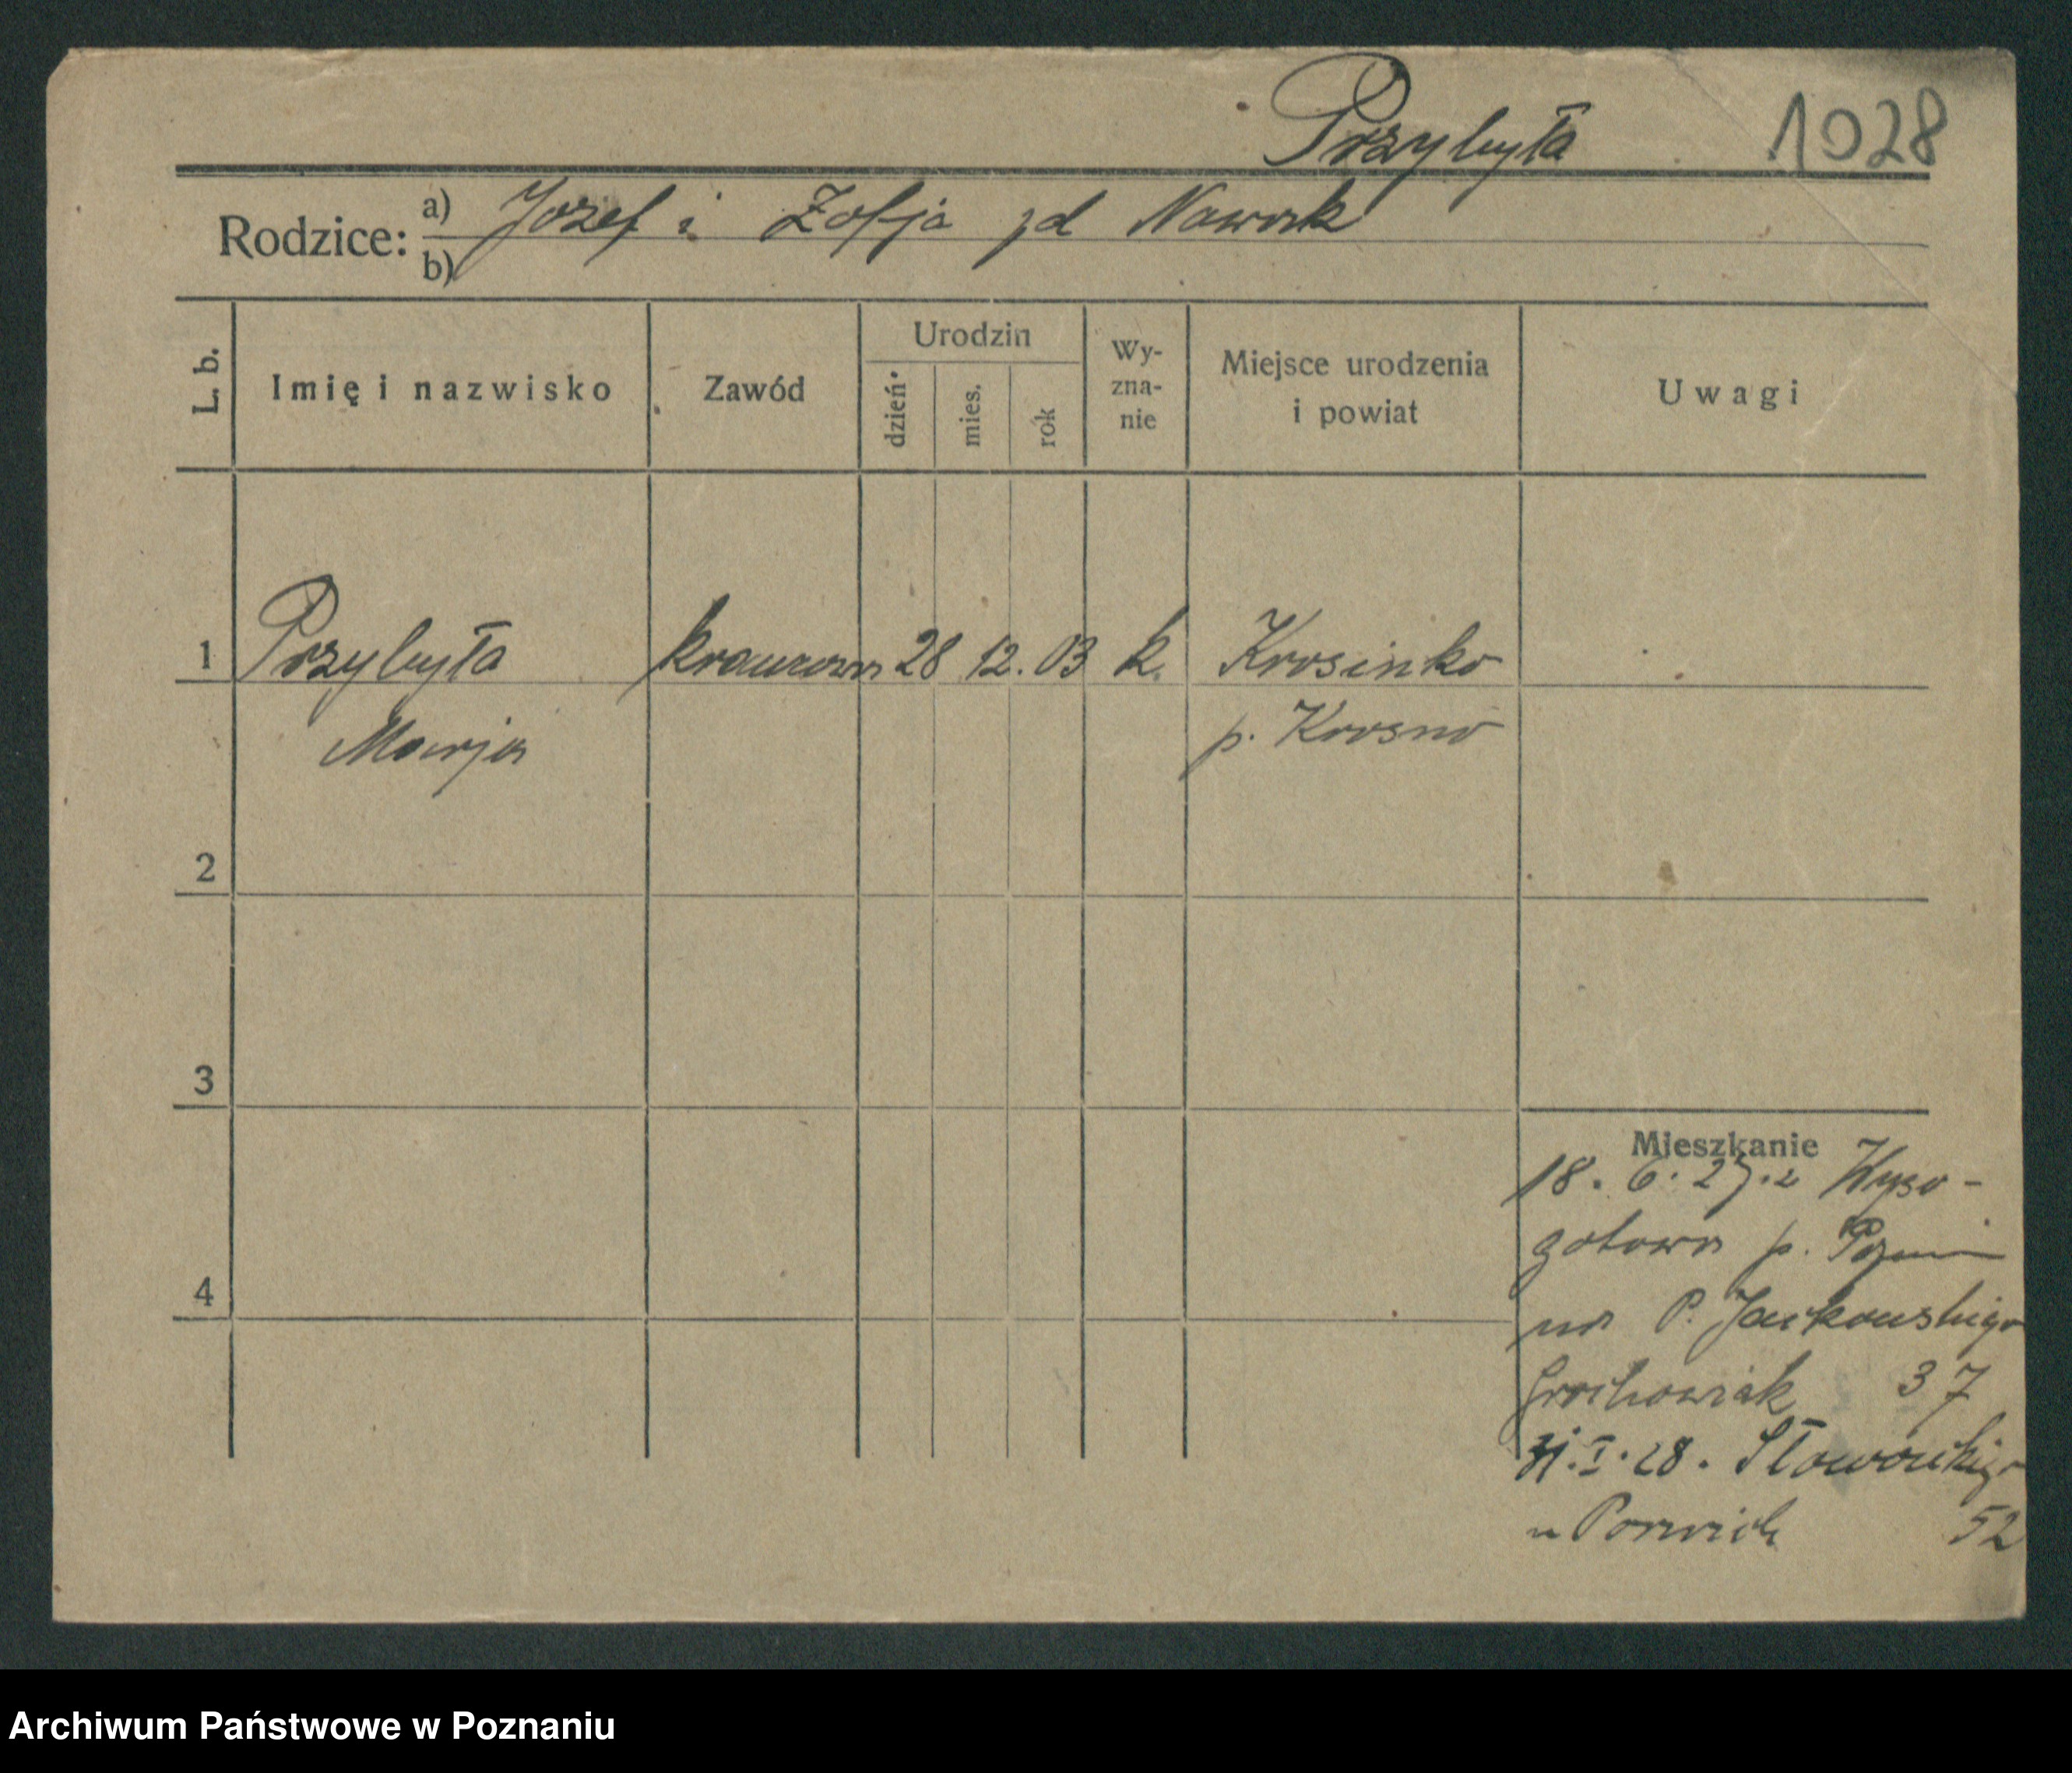 Przybyła 1028
Rodzice: a) Józef i Zofja zd Nawrk
b)
L. b. Imię i nazwisko Zawód Urodzin dzień mies. rok Wy-zna-nie Miejsce urodzenia i powiat Uwagi
1 Przybyła krawcowa 28 12. 03 k. Krosinko
Marja p. Krosno
2
3
Mieszkanie
18. 6. 27. z Wyso-
gotowa p. Pozn
4
na P. Jackowskiego
Grochowiak 37
31. I. 28. Słowackiego
u 52
Archiwum Państwowe w Poznaniu